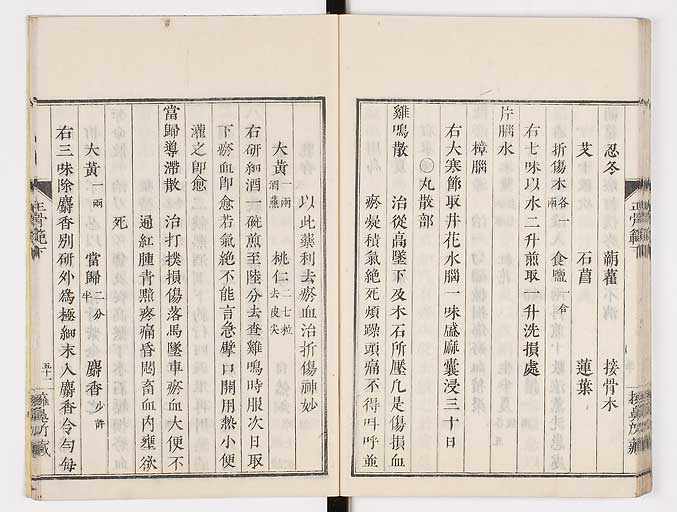 忍冬 蒴藋 接骨木
艾 石菖 蓮葉
右七味以水二升煎取一升洗損處
折傷木各一兩 食鹽一合
片腦水
樟腦
右大寒節取井花水腦一味盛麻囊浸三十日
○丸散部
雞鳴散 治從高墜下及木石所壓凡是傷損血
瘀凝積氣絶死煩躁頭痛不得呌呼並
以此藥利去瘀血治折傷神妙
大黃一兩酒蘸 桃仁二七粒去皮尖
右研細酒一碗煎至陸分去查雞鳴時服次日取
下瘀血即愈若氣絶不能言急擘口開用熱小便
灌之即愈
當歸導滯散 治打撲損傷落馬墜車瘀血大便不
通紅腫青黯疼痛昏悶畜血内壅欲
死
大黃一兩 當歸二分半 麝香少許
右三味除麝香别研外爲極細末入麝香令匀每
正骨範下
五十一